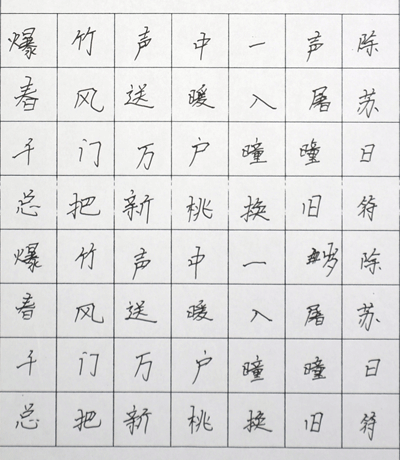 爆竹声中一声除
春风送暖入屠苏
千门万户瞳瞳日
总把新桃换旧符
爆竹声中一岁除
春风送暖入屠苏
千门万户瞳瞳日
总把新桃换旧符